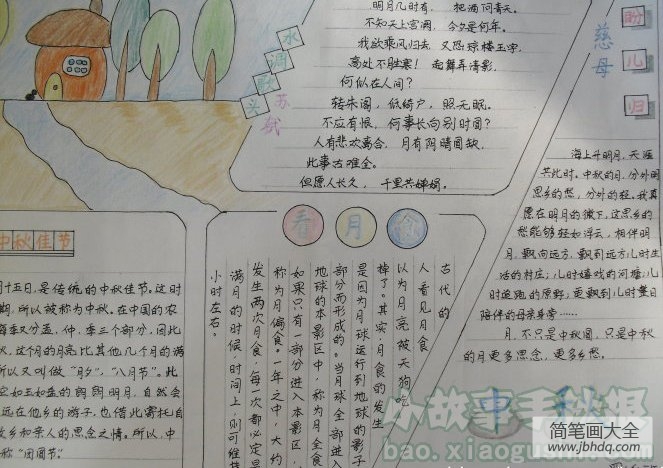 明月几时有， 把酒问青天。
不知天上宫阙，今夕是何年。
我欲乘风归去，又恐琼楼玉宇，
高处不胜寒！起舞弄清影，
何似在人间？
转朱阁，低绮户，照无眠。
不应有恨，何事长向别时圆？
人有悲欢离合，月有阴晴圆缺，
此事古难全。
但愿人长久， 千里共婵娟。
水调歌头
苏轼
慈母
盼儿归
海上升明月，天涯
共此时。中秋的月，分外明
思乡的愁，分外的轻。我真
愿在明月的微下，这思乡的
愁能够轻如浮云，相伴明
月，飘向远方。飘到远方儿时生
活的村庄；儿时嬉戏的河塘；儿
时追跑的原野；更飘到儿时曾日
陪伴的母亲身旁……
月，不只是中秋圆，只是中秋
的月更多思念，更多乡愁。
中秋
看月食
古代的
人看见月食
以为月亮被天狗吃
掉了。其实，月食的发生
是因为月球运行到地球的影子
部分而形成的。当月球全部进入
地球的本影区中，称为月全食
如果只有一部分进入本影区，
称为月偏食。一年之中，大约
发生两次月食，每一次都必定是
满月的时候，时间上，则可维持
小时左右。
中秋佳节
月十五日，是传统的中秋佳节。这时
期，所以被称为中秋。在中国的农
每季又分孟、仲、季三个部分，因比
火，这个月的月亮比其他几个月的满
所以又叫做“月夕”，“八月节”。此
空如玉如盘的朗朗明月，自然会
远在他乡的游子，也借此寄托自
故乡和亲人的思念之情。所以，中
称“团圆节”
小故事手抄报
bao.xiaogushi
简笔画大全
www.jbhdq.com